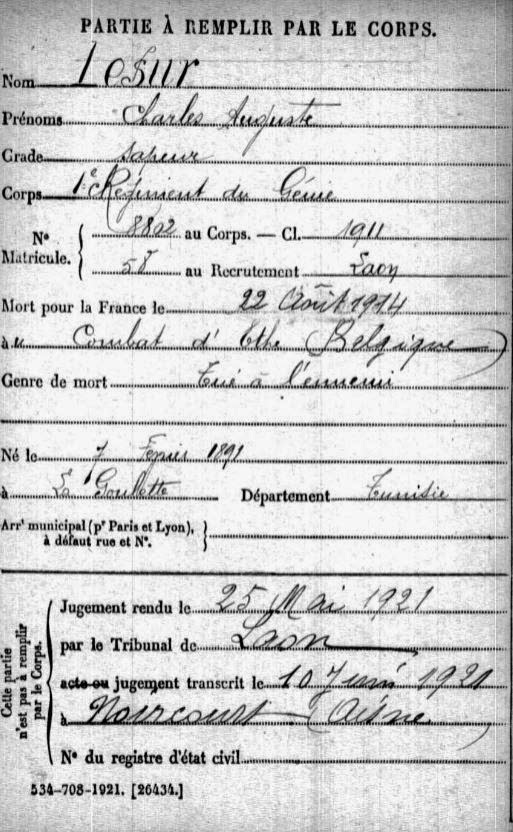 PARTIE À REMPLIR PAR LE CORPS.
Nom Lesur
Prénoms Charles Auguste
Grade sapeur
Corps 1e Régiment du Génie
N° Matricule. { 8802 au Corps. — Cl. 1911
58 au Recrutement Laon
Mort pour la France le 22 Août 1914
à u Combat d'Ethe (Belgique)
Genre de mort Tué à l'ennemi
Né le 7 Février 1891
à La Goulette Département Tunisie
Arrt municipal (pr Paris et Lyon), }
à défaut rue et N°.
Cette partie n'est pas à remplir par le Corps.
Jugement rendu le 25 Mai 1921
par le Tribunal de Laon
acte ou jugement transcrit le 10 Juin 1921
à Noircourt (Aisne
N° du registre d'état civil
534-708-1921. [26434.]